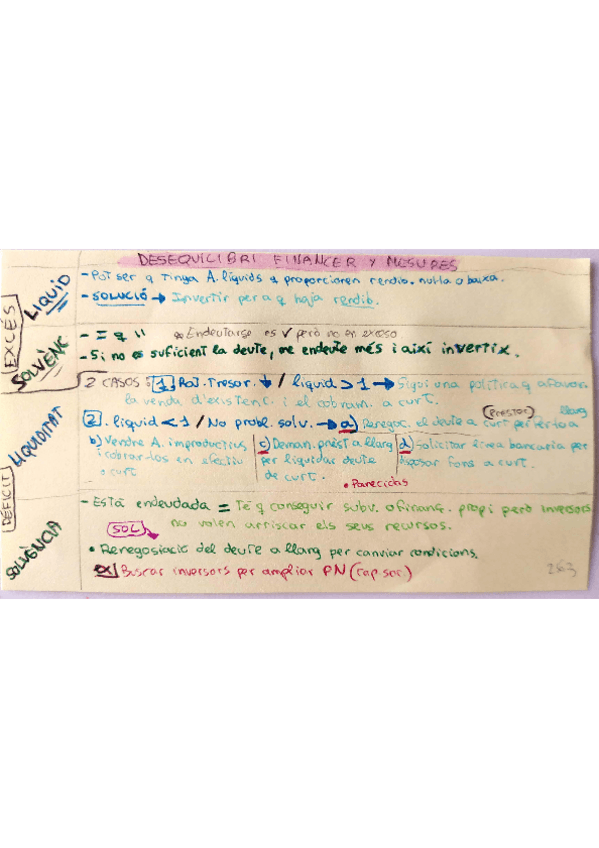 DESEQUILIBRI FINANCER Y MESURES
EXCÉS
LIQUID
- Pot ser q tinga A. líquids q proporcionen rendib. nul·la o baixa.
- SOLUCIÓ → Invertir per a q haja rendib.
SOLVÈNC
- = q " Endeutarse es ✓ però no en exceso
- Si no es suficient la deute, me endeute més i així invertix.
DÈFICIT
LIQUIDITAT
2 CASOS: 1 Raj. Tresor. ↓ / liquid > 1 → Sigui una política q afavor.
la venda d'existenc. i el cobram. a curt.
2. liquid < 1 / No probl. solv. → a) Renegoc. el deute a curt per fer-to a llarg
(PRESTOC)
b) Vendre A. improductius i cobrar-los en efectiu o curt
c) Deman. prést a llarg per liquidar deute de curt.
d) Solicitar línea bancaria per disposar fons a curt.
• Parecidas
SOLVÈNCIA
- Està endeudada = Té q conseguir subv. o finanç. propi però inversors
no volen arriscar els seus recursos.
SOL
• Renegosiació del deute a llarg per canviar condicions.
ex Buscar inversors per ampliar PN (cap. soc.)
263